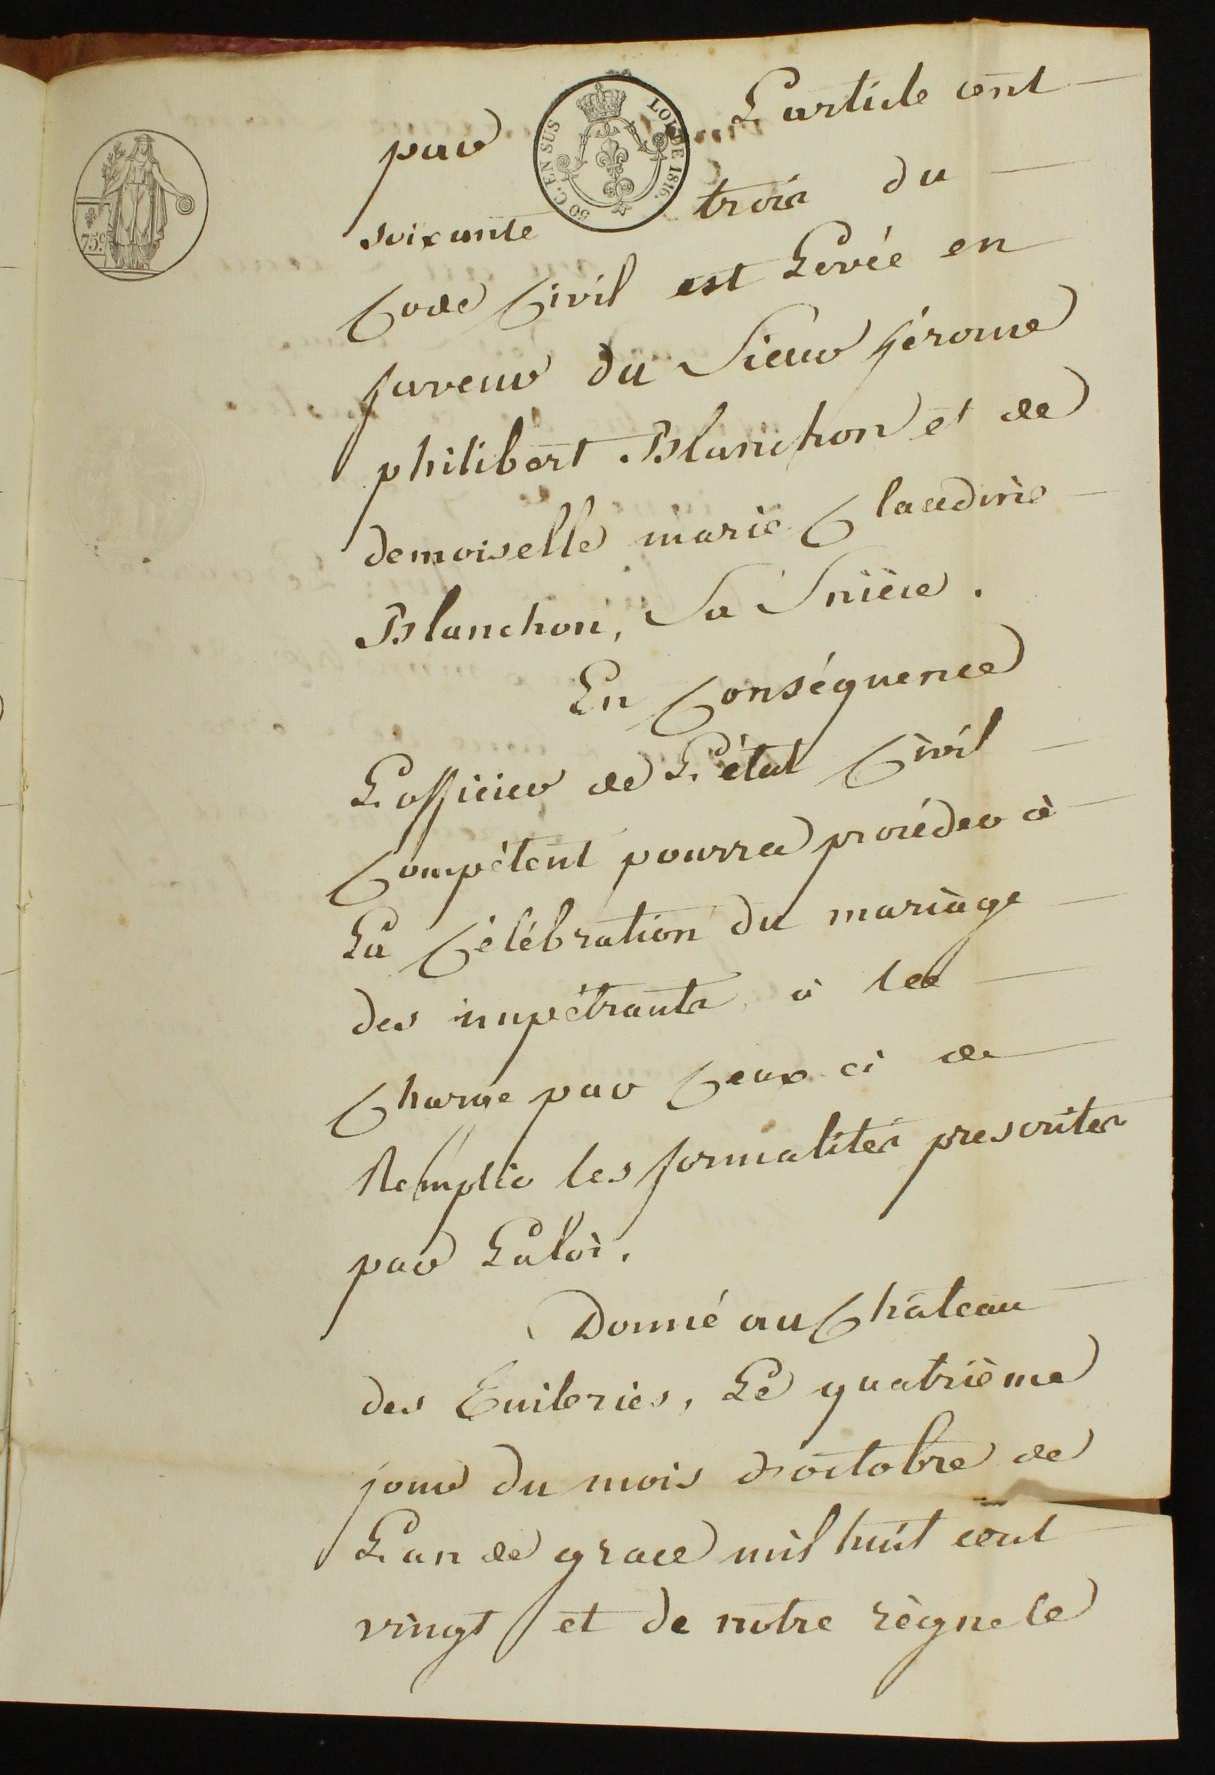 50 C. EN SUS
LOI DE 1816.
75 c
par L'article cent
soixante trois du
Code Civil est Levée en
faveur du Sieur jérome
philibert Blanchon et de
demoiselle marie Claudine
Blanchon, Sa Nièce.
En Conséquence
L'officier de L'état Civil
Compétent pourra procéder à
La Célébration du mariage
des impétrants, à la
Charge par Ceux ci de
Remplir les formalités prescrites
par La loi.
Donné au Château
des Tuileries, Le quatrième
jour du mois d'octobre de
L'an de grace mil huit cent
vingt et de notre règne le